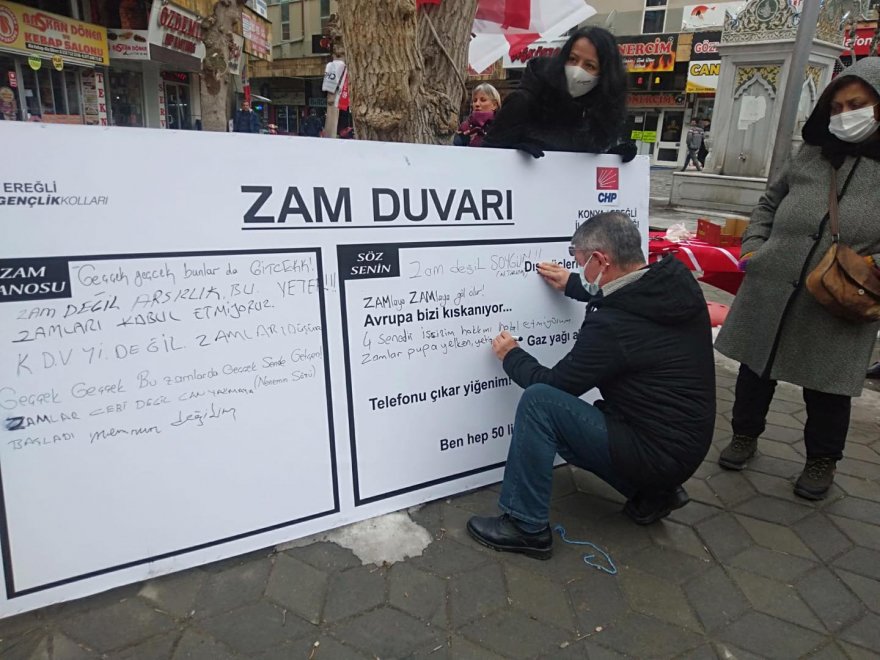 BAŞKAN DÖNER
KEBAP SALONU
ÖZDEMİR
EREĞLİ
GENÇLİKKOLLARI
ZAM DUVARI
CHP
KONYA EREĞLİ
ZAM
ANOSU
Geççek geççek bunlar da GİTCEKEK!
ZAM DEĞİL ARSIZLIK BU. YETER!!!
ZAMLARI KABUL ETMİYORUZ.
KDV Yİ DEĞİL ZAMLARI DÜŞÜRÜN
Geççek Geççek Bu zamlarda Geççek Sende Gelicen!
ZAMLAR GERİ DEĞİL CAN YAKMAYA (Nenemin Sözü)
BAŞLADI memnun değilim
SÖZ
SENİN
Zam değil SOYGUN!!
Dış güçler
ZAMlaya ZAMlaya göl olur!
Avrupa bizi kıskanıyor...
4 senedir işsizim hakkımı helal etmiyorum
Zamlar pupa yelken,
• Gaz yağı a
Telefonu çıkar yiğenim!
Ben hep 50 li